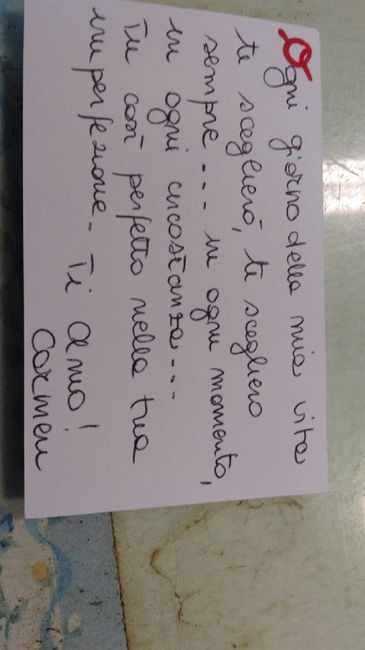 Ogni giorno della mia vita
te sceglierò, te sceglierò
sempre... in ogni momento,
in ogni circostanza...
Tu così perfetto nella tua
imperfezione. Ti amo!
Carmen